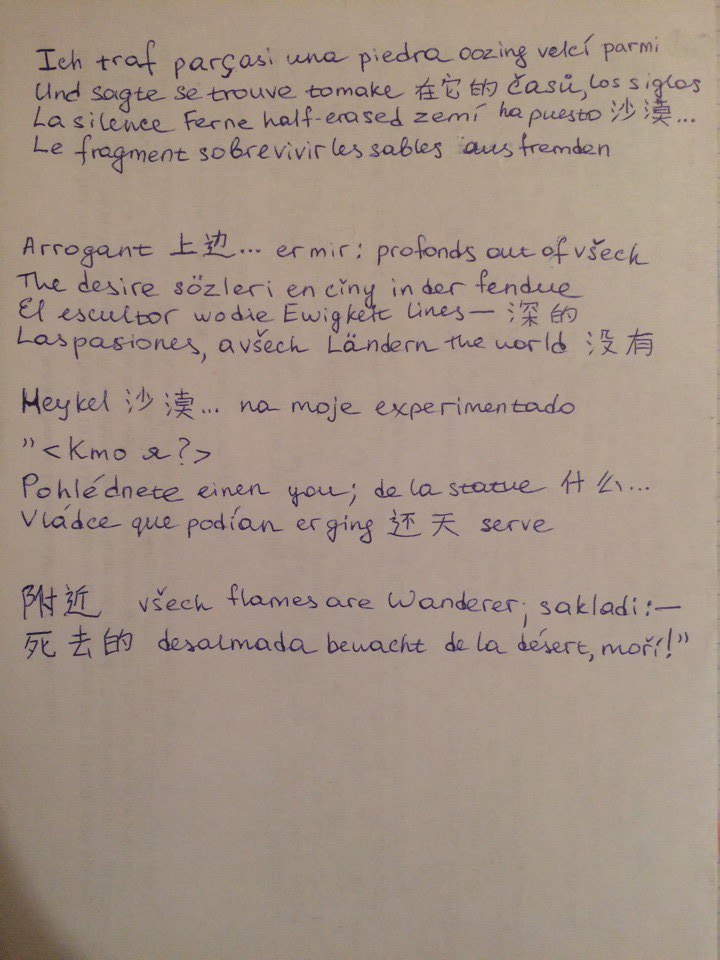 Ich traf parçasi una piedra oozing velcí parmi
Und sagte se trouve tomake 在它的 časů, los siglos
La silence Ferne half-erased zemí ha puesto 沙漠...
Le fragment sobrevivir les sables aus fremden
Arrogant 上边... er mir: profonds out of všech
The desire sözleri en ciny in der fendue
El escultor wo die Ewigkeit lines— 深的
Las pasiones, a všech Ländern the world 没有
Heykel 沙漠... na moje experimentado
"<Кто я?>
Pohlédnete einen you; de la statue 什么...
Vládce que podían er ging 还天 serve
附近 všech flames are Wanderer; sakladi:—
死去的 desalmada bewacht de la désert, moří!"